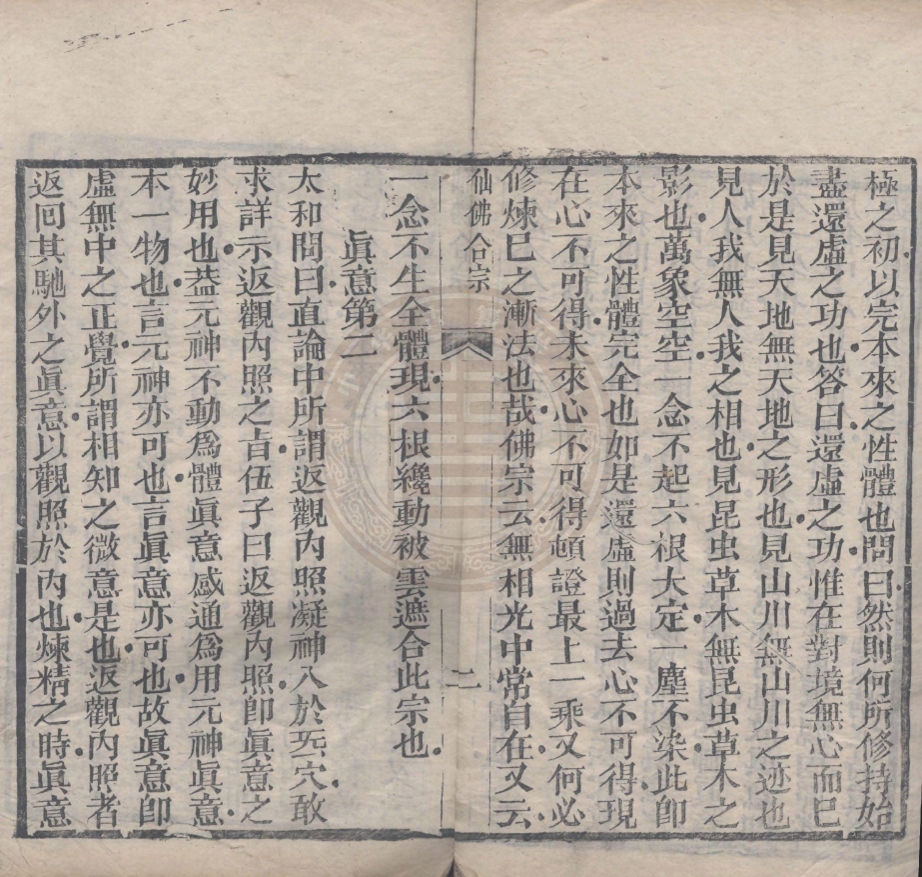 極之初以完本來之性體也問曰然則何所修持始
盡還虛之功也答曰還虛之功惟在對境無心而已
於是見天地無天地之形也見山川無山川之迹也
見人我無人我之相也見昆虫草木無昆虫草木之
影也萬象空空一念不起六根大定一塵不染此卽
本來之性體完全也如是還虛則過去心不可得現
在心不可得未來心不可得頓證最上一乘又何必
修煉已之漸法也哉佛宗云無相光中常自在又云
仙佛合宗 二
一念不生全體現六根纔動被雲遮合此宗也
眞意第二
太和問曰直論中所謂返觀內照凝神入於炁穴敢
求詳示返觀內照之旨伍子曰返觀內照卽眞意之
妙用也葢元神不動爲體眞意感通爲用元神眞意
本一物也言元神亦可也言眞意亦可也故眞意卽
虛無中之正覺所謂相知之微意是也返觀內照者
返回其馳外之眞意以觀照於內也煉精之時眞意